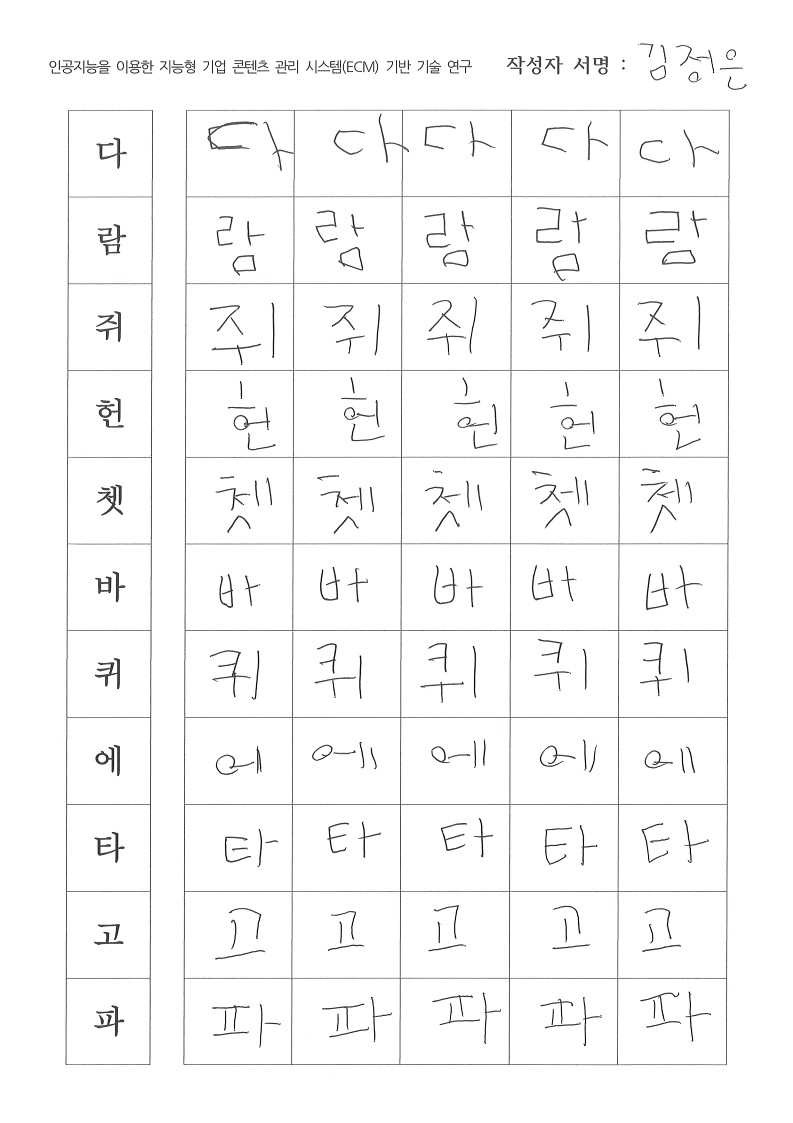 인공지능을 이용한 지능형 기업 콘텐츠 관리 시스템(ECM) 기반 기술 연구 작성자 서명 : 김정은
다 다 다 다 다 다
람 람 람 람 람 람
쥐 쥐 쥐 쥐 쥐 쥐
헌 헌 헌 헌 헌 헌
쳇 쳇 쳇 쳇 쳇 쳇
바 바 바 바 바 바
퀴 퀴 퀴 퀴 퀴 퀴
에 에 에 에 에 에
타 타 타 타 타 타
고 고 고 고 고 고
파 파 파 파 파 파